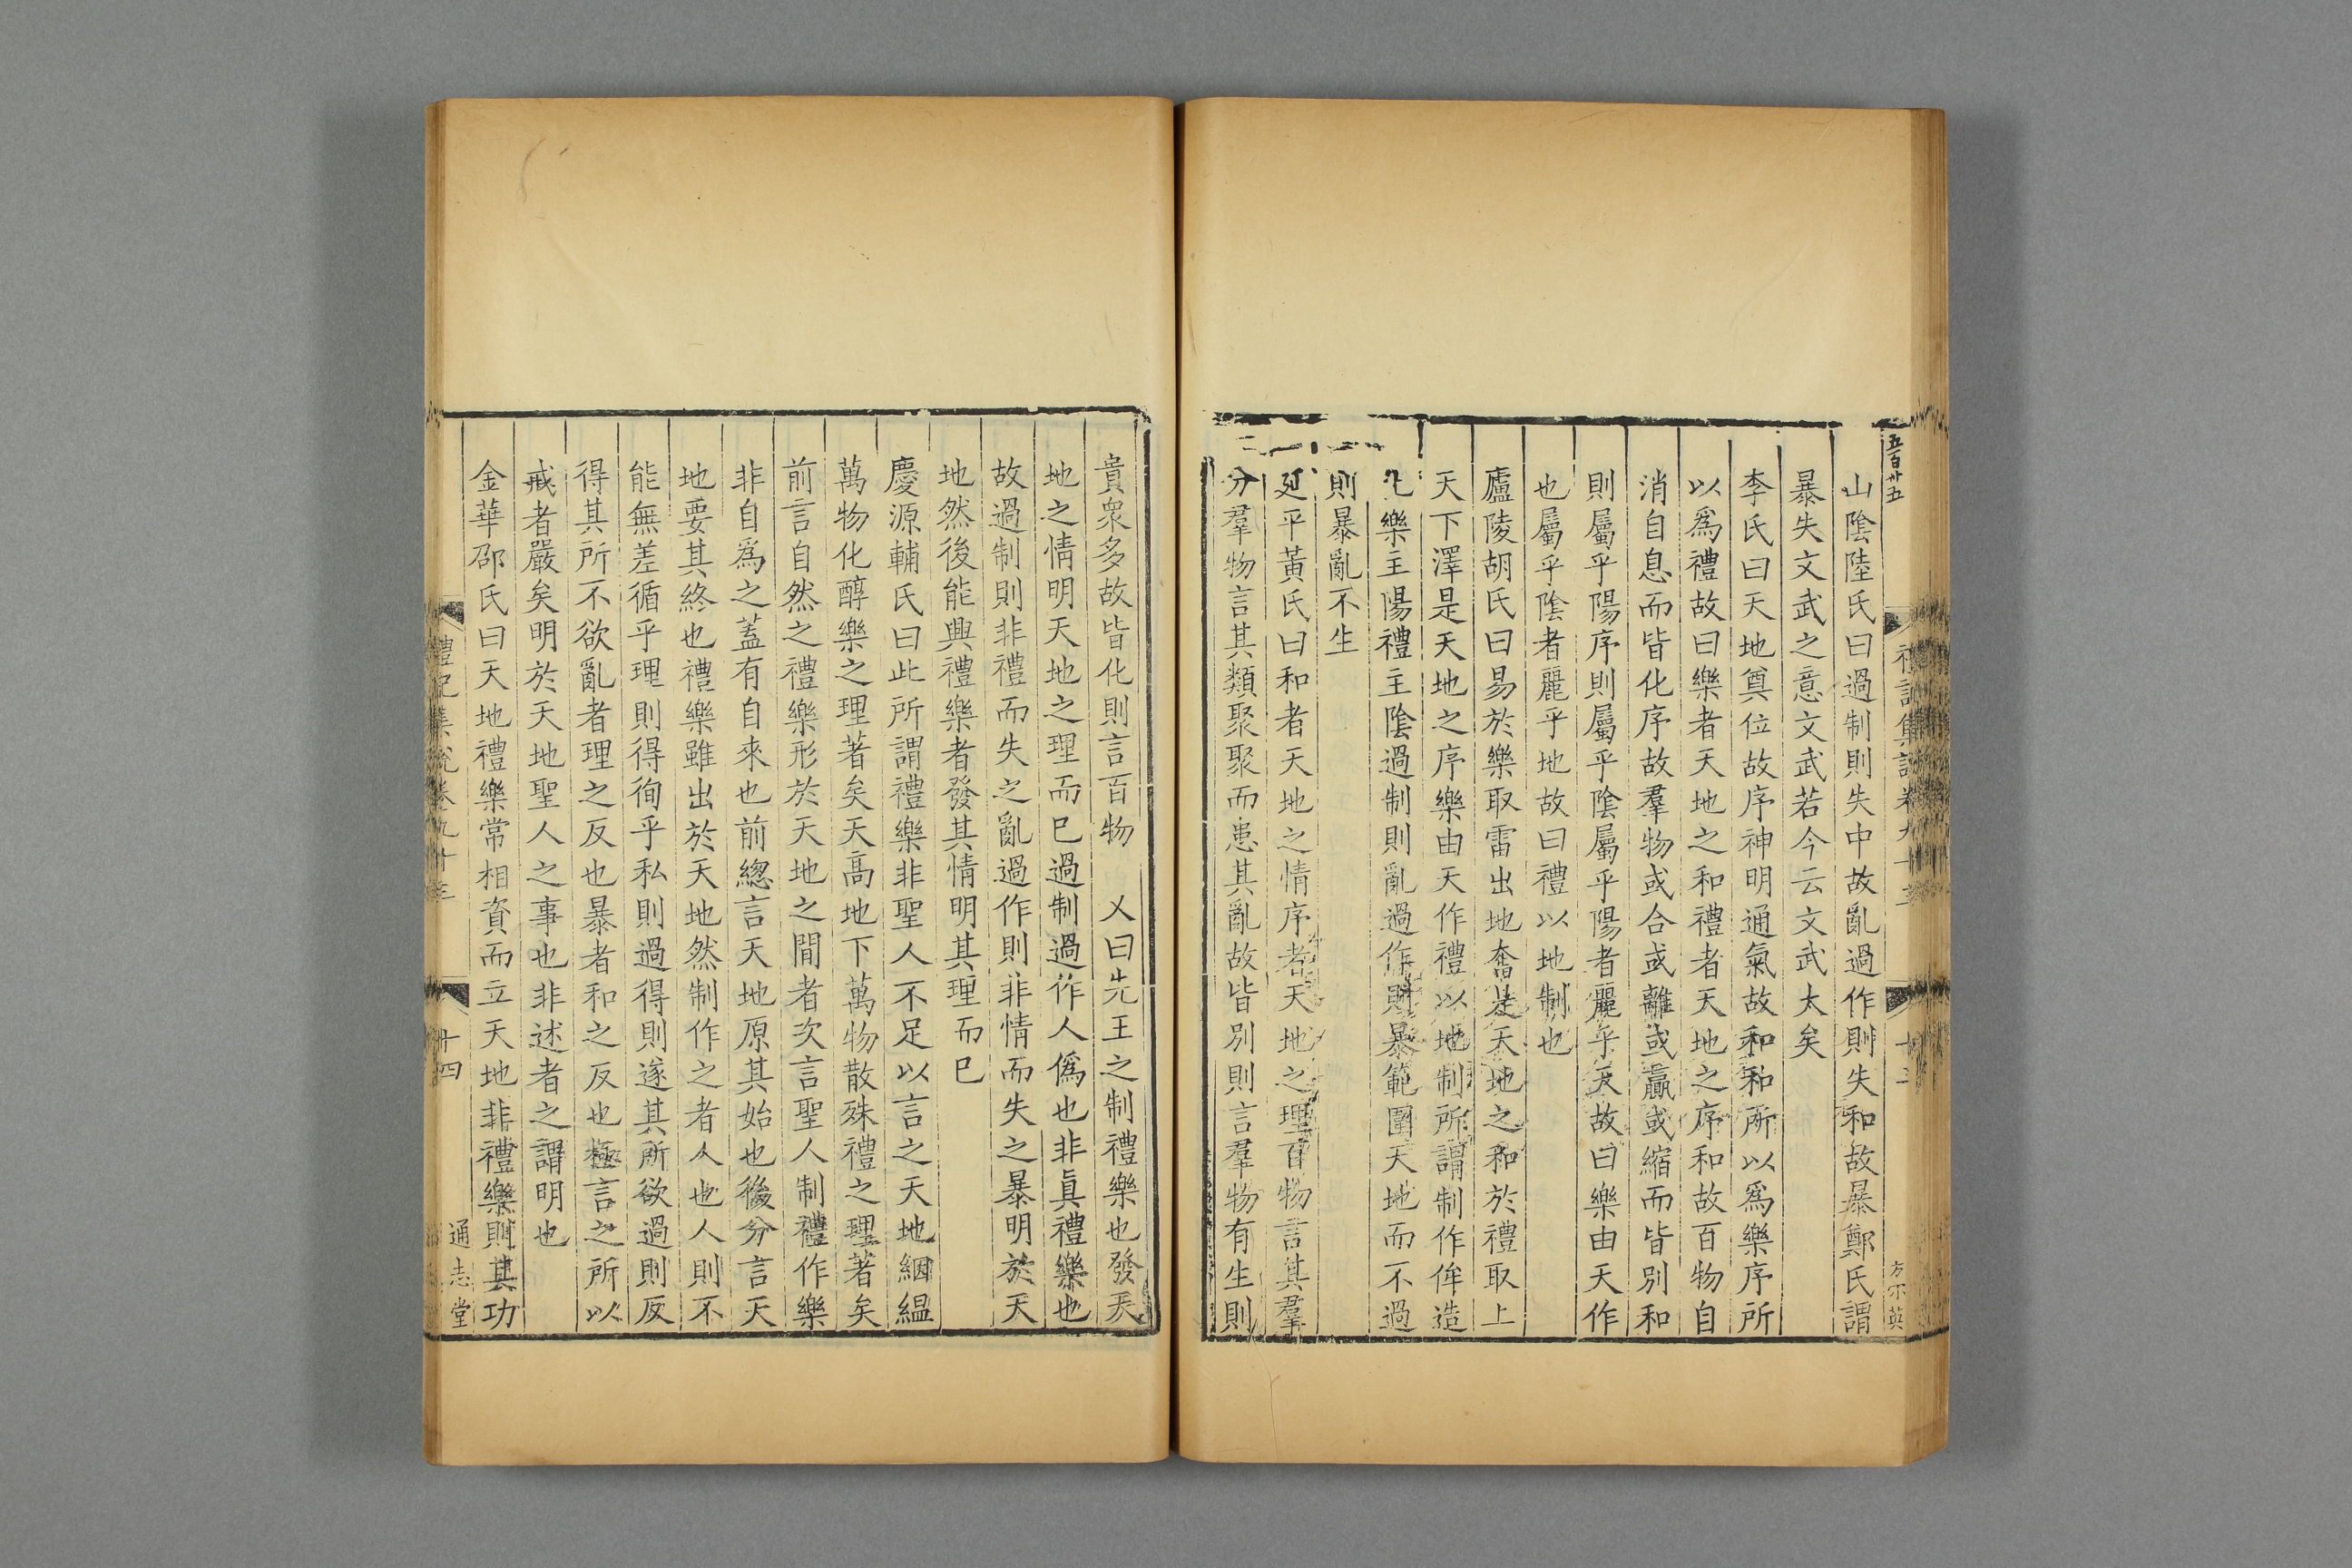 五百廿五
山陰陸氏曰過制則失中故亂過作則失和故暴鄭氏謂
暴失文武之意文武若今云文武太矣
李氏曰天地奠位故序神明通氣故和和所以爲樂序所
以爲禮故曰樂者天地之和禮者天地之序和故百物自
消自息而皆化序故羣物或合或離或贏或縮而皆別和
則屬乎陽序則屬乎陰屬乎陽者麗乎天故曰樂由天作
也屬乎陰者麗乎地故曰禮以地制也
廬陵胡氏曰易於樂取雷出地奮是天地之和於禮取上
天下澤是天地之序樂由天作禮以地制所謂制作侔造
化樂主陽禮主陰過制則亂過作則暴範圍天地而不過
則暴亂不生
延平黃氏曰和者天地之情序者天地之理百物言其羣
分羣物言其類聚聚而患其亂故皆別則言羣物有生則
貴衆多故皆化則言百物 又曰先王之制禮樂也發天
地之情明天地之理而已過制過作人僞也非眞禮樂也
故過制則非禮而失之亂過作則非情而失之暴明於天
地然後能興禮樂者發其情明其理而已
慶源輔氏曰此所謂禮樂非聖人不足以言之天地絪縕
萬物化醇樂之理著矣天高地下萬物散殊禮之理著矣
前言自然之禮樂形於天地之間者次言聖人制禮作樂
非自爲之蓋有自來也前緫言天地原其始也後分言天
地要其終也禮樂雖出於天地然制作之者人也人則不
能無差循乎理則得徇乎私則過得則遂其所欲過則反
得其所不欲亂者理之反也暴者和之反也極言之所以
戒者嚴矣明於天地聖人之事也非述者之謂明也
金華邵氏曰天地禮樂常相資而立天地非禮樂則其功
禮記集說卷九十三 十四 通志堂